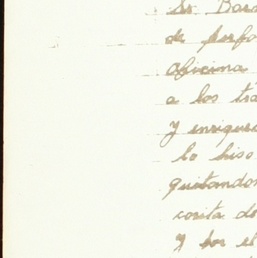 Sr Bar
de perfo
oficina
a los tra
y enrique
lo hiso
quitandon
cosita do
y por el